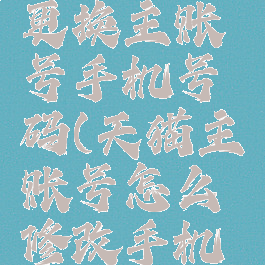 更换主账
号手机号
码(天猫主
账号怎么
修改手机